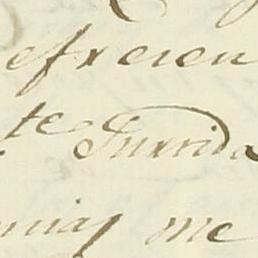 efreren
te Jurrida
nias me